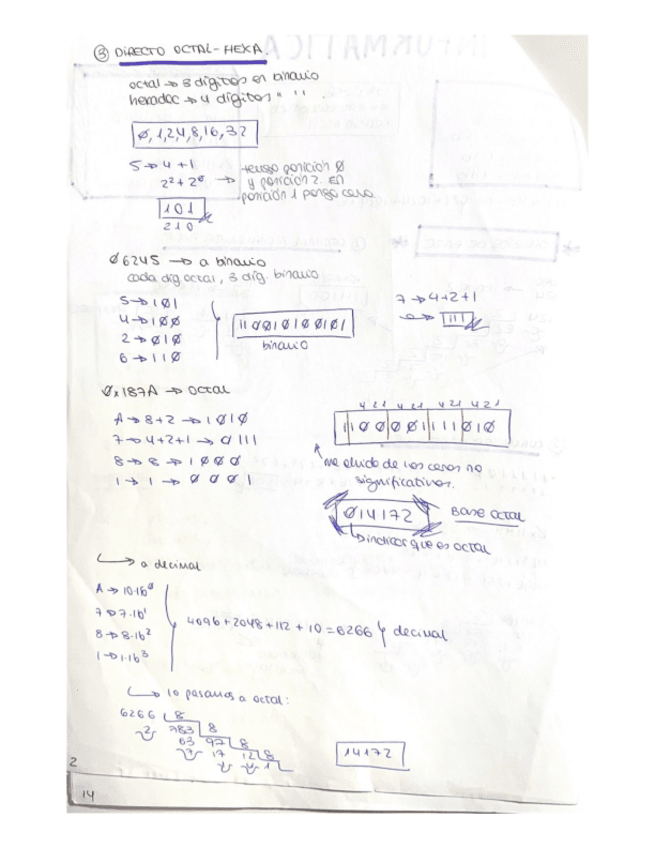 ③ DIRECTO OCTAL-HEXA.
octal → 3 dígitos en binario
hexadec → 4 dígitos " " .
Ø,1,2,4,8,16,32
5 → 4+1
2² + 2⁰ →
tengo posición Ø
y posición 2. En
posición 1 pongo cero
101
2 1 0
Ø6245 → a binario
cada díg octal, 3 díg. binario
5 → 1Ø1
4 → 1ØØ
2 → Ø1Ø
6 → 11Ø
11ØØ1Ø1ØØ1Ø1
binario
7 → 4+2+1
111
Øx187A → OCTAL
A → 8+2 → 1Ø1Ø
7 → 4+2+1 → Ø111
8 → 8 → 1ØØØ
1 → 1 → ØØØ1
4 2 1 4 2 1 4 2 1 4 2 1
1|1ØØ|ØØ1|111|Ø1Ø
me olvido de los ceros no
significativos.
Ø14172 Base octal
indica que es octal
→ a decimal
A → 10·16⁰
7 → 7·16¹
8 → 8·16²
1 → 1·16³
4096+2048+112+10=6266 decimal
→ lo pasamos a octal:
6266 8
2 783 8
63 97 8
7 17 12 8
1 4 1
14172
2
14